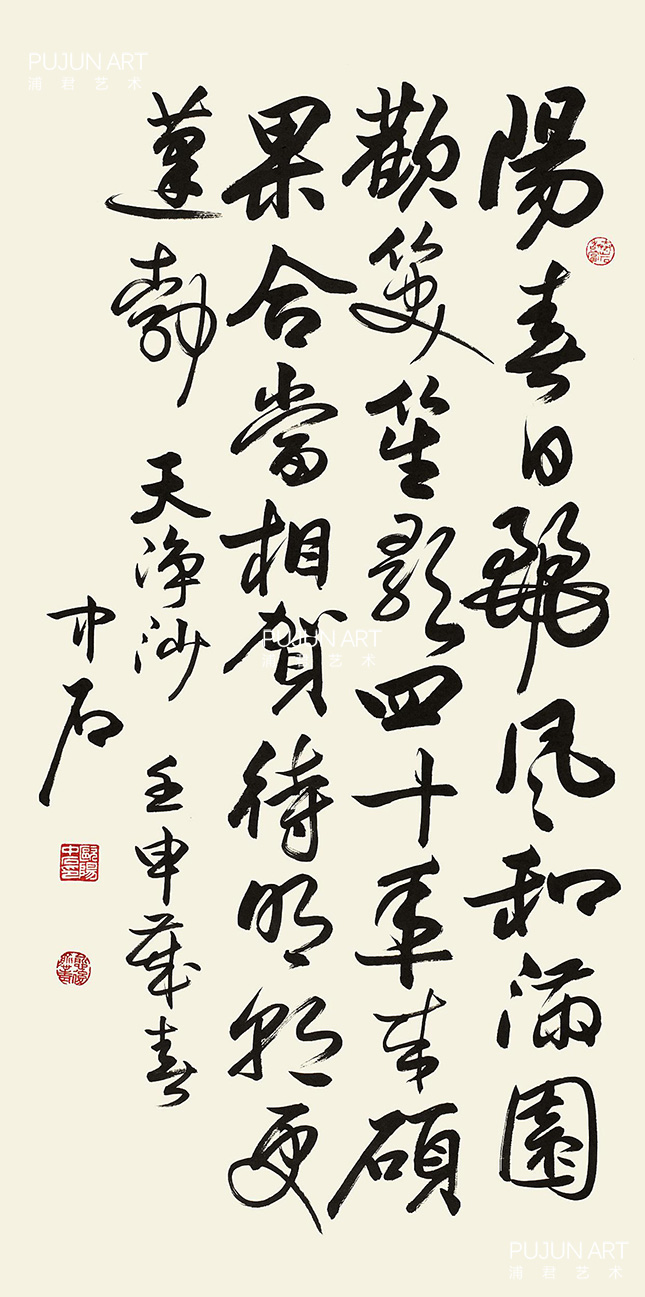 陽春日麗風和滿園
歡笑笙歌四十年來碩
果合當相賀待明朝更
蓬勃
天淨沙 壬申歲春
中石
歐陽中石印
PUJUN ART
浦君艺术
PUJUN ART
浦君艺术
PUJUN ART
浦君艺术